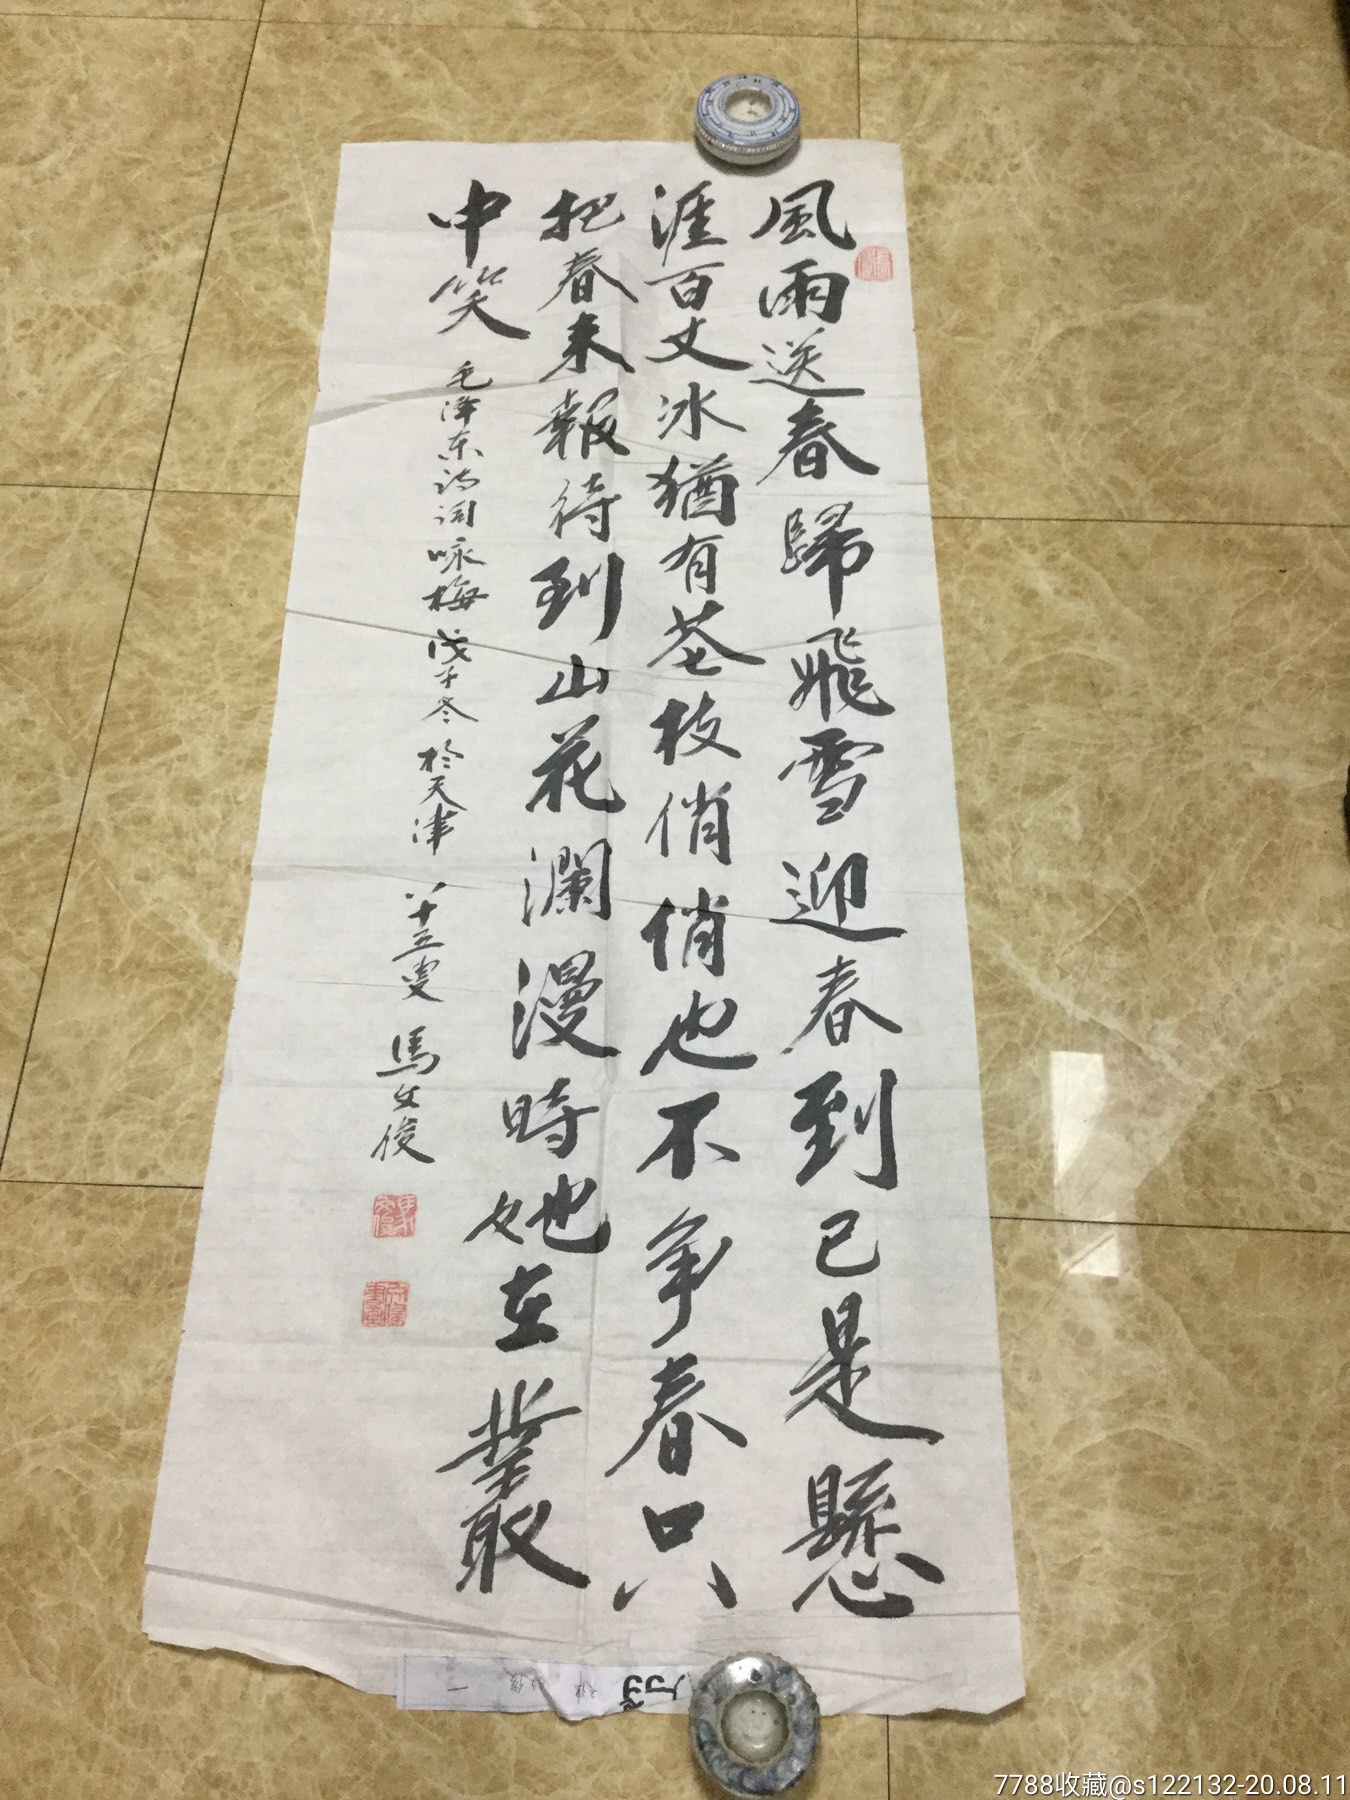 風雨送春歸飛雪迎春到已是懸
涯百丈冰猶有花枝俏俏也不争春只
把春来報待到山花瀾漫時她在叢
中笑
毛泽东诗词咏梅 戊子冬 於天津 八十五叟 馬文俊
7788收藏@s122132-20.08.11